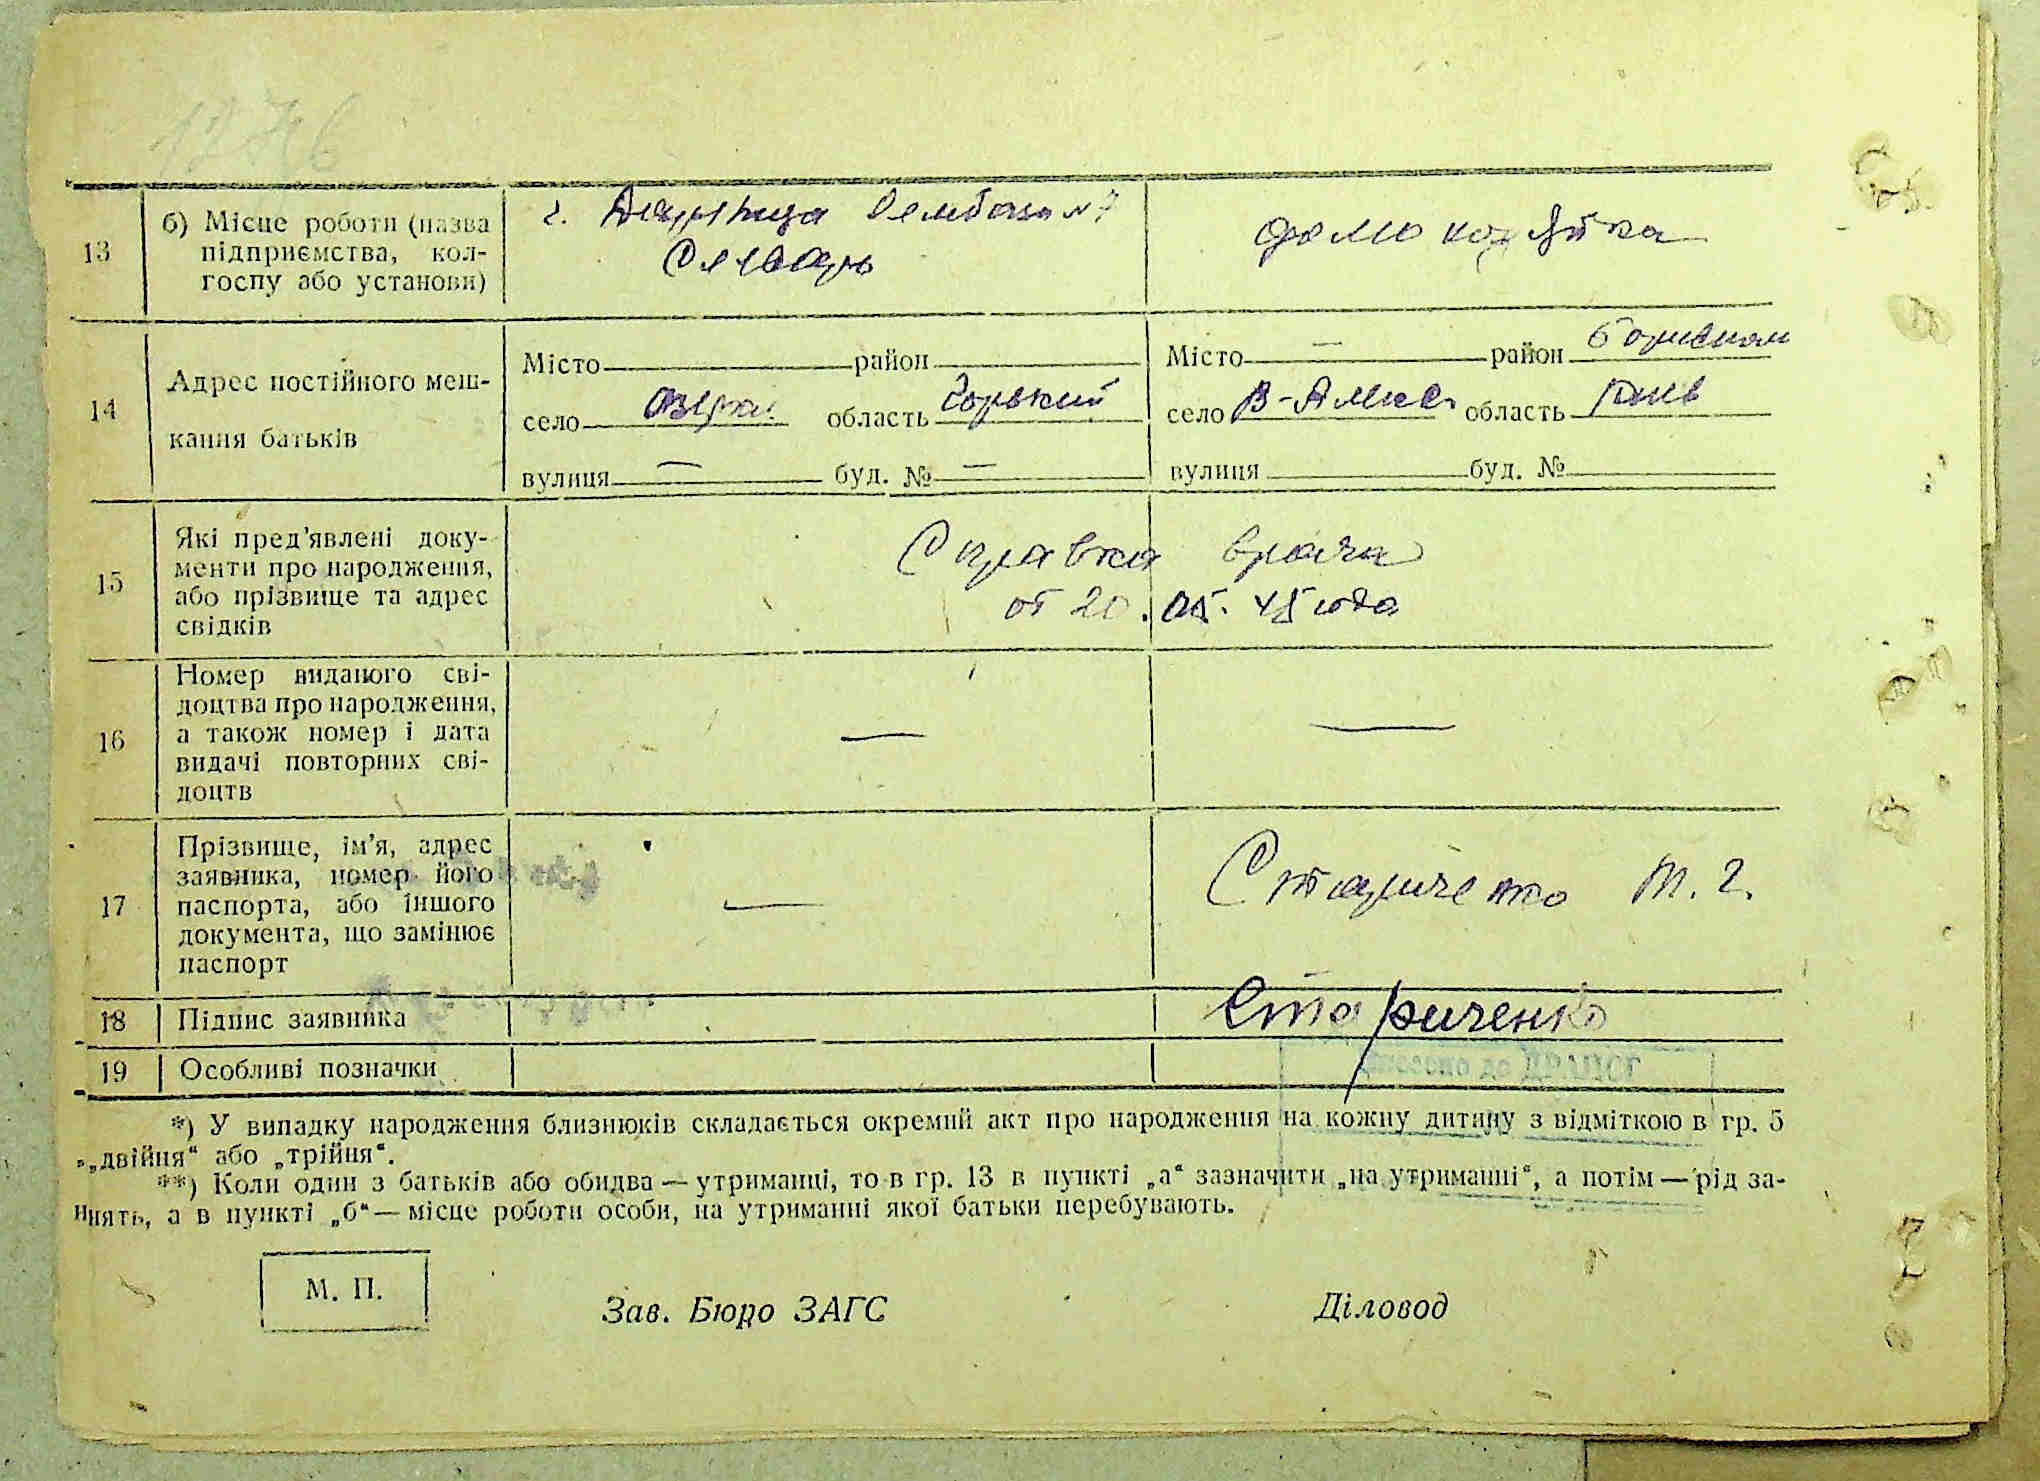 1276
13
б) Місце роботи (назва
підприємства, кол-
госпу або установи)
г. Дарница Рембаза № 7
Слесарь
домохозяйка
14
Адрес постійного меш-
кання батьків
Місто — район
село область Горький
вулиця — буд. № —
Місто — район Бориспол
село В-Алекс. область Киев
вулиця буд. №
15
Які пред'явлені доку-
менти про народження,
або прізвище та адрес
свідків
Справка врача
от 20.05.45 года
16
Номер виданого сві-
доцтва про народження,
а також номер і дата
видачі повторних сві-
доцтв
—
—
17
Прізвище, ім'я, адрес
заявника, номер його
паспорта, або іншого
документа, що замінює
паспорт
—
Стариченко М. Г.
18
Підпис заявника
Стариченко
19
Особливі позначки
Внесено до ДРАЦСГ
*) У випадку народження близнюків складається окремий акт про народження на кожну дитину з відміткою в гр. 5
„двійня“ або „трійня“.
**) Коли один з батьків або обидва — утриманці, то в гр. 13 в пункті „а“ зазначити „на утриманні“, а потім — рід за-
нять, а в пункті „б“ — місце роботи особи, на утриманні якої батьки перебувають.
М. П.
Зав. Бюро ЗАГС
Діловод